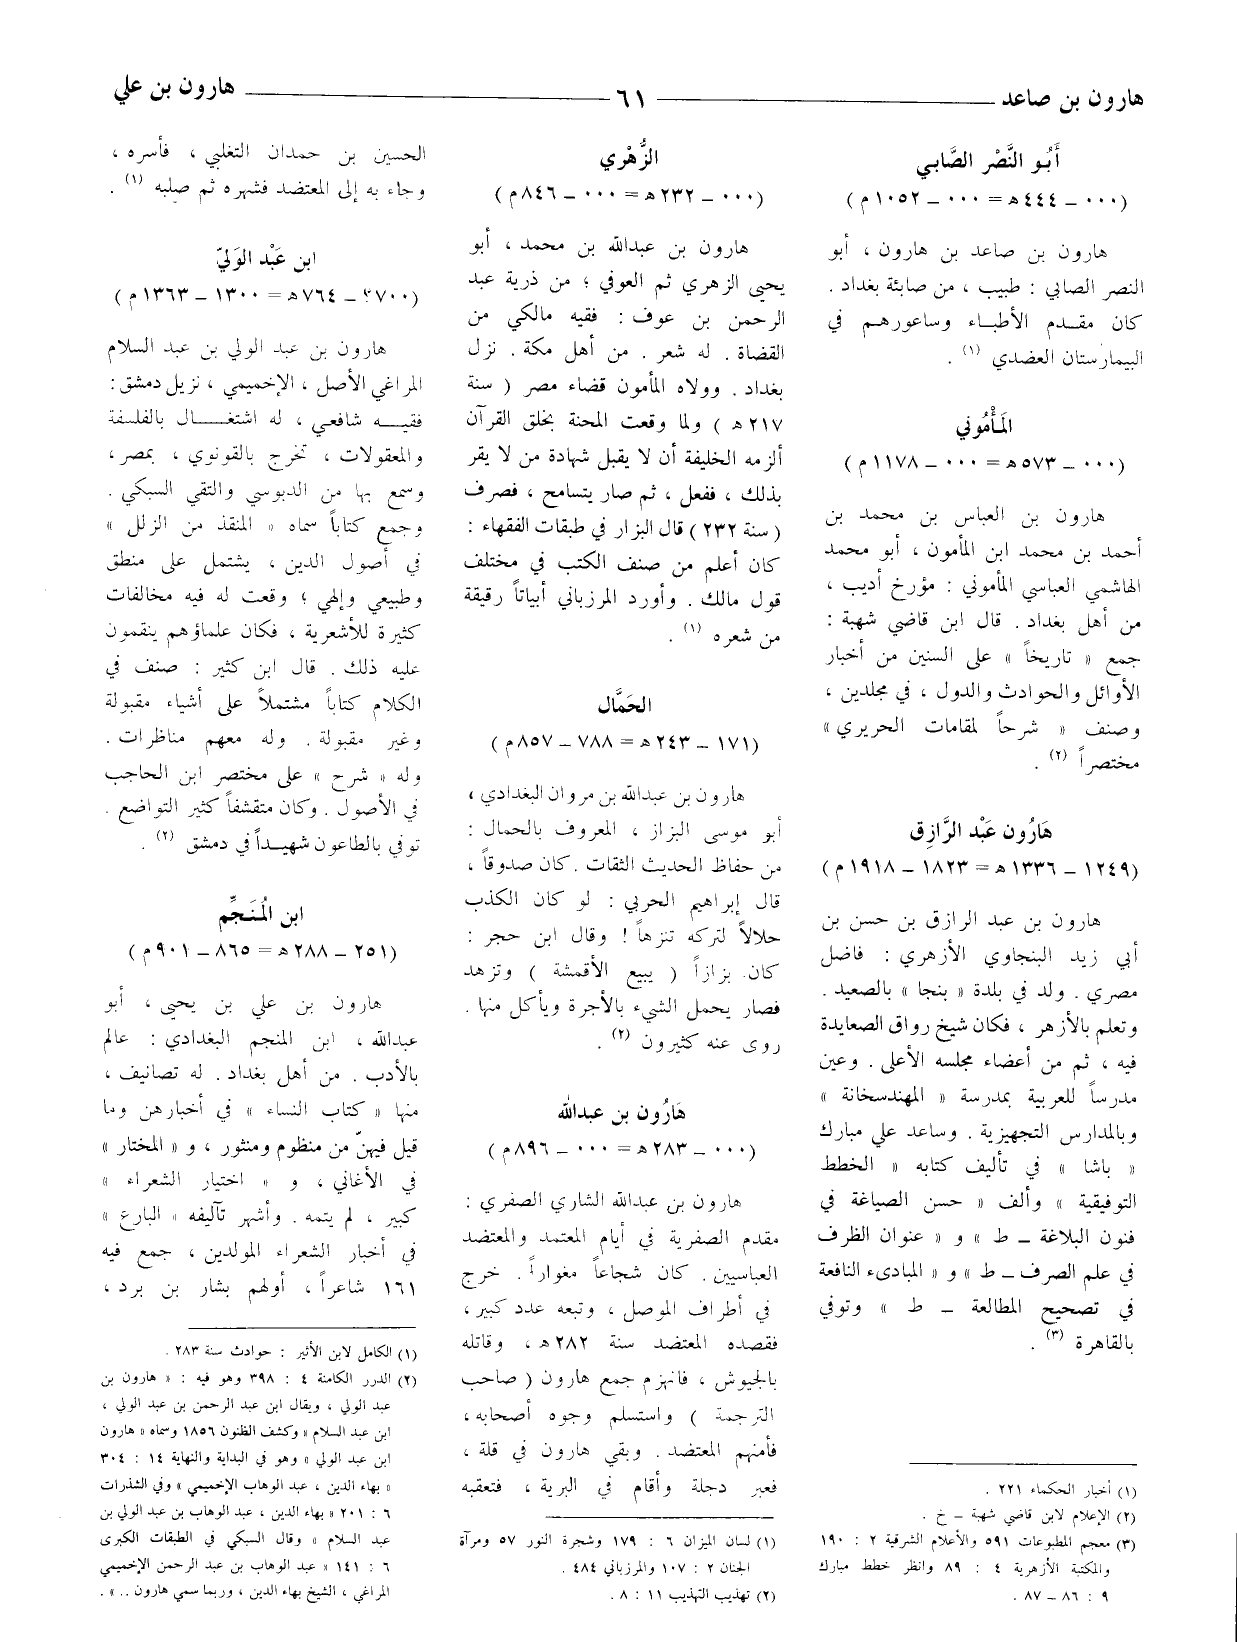 هارون بن صاعد
٦١
هارون بن علي
أَبُو النَّصْر الصَّابي
(٠٠٠ ــ ٤٤٤ه = ٠٠٠ ــ ١٠٥٢م)
هارون بن صاعد بن هارون ، أبو
النصر الصابي : طبيب ، من صابئة بغداد .
كان مقدم الأطباء وساعورهم في
البيمارستان العضدي (١) .
المَأْمُوني
(٠٠٠ ــ ٥٧٣ه = ٠٠٠ ــ ١١٧٨م)
هارون بن العباس بن محمد بن
أحمد بن محمد ابن المأمون ، أبو محمد
الهاشمي العباسي المأموني : مؤرخ أديب ،
من أهل بغداد . قال ابن قاضي شهبة :
جمع « تاريخاً » على السنين من أخبار
الأوائل والحوادث والدول ، في مجلدين ،
وصنف « شرحاً لمقامات الحريري »
مختصراً (٢) .
هَارُون عَبْد الرَّازِق
(١٢٤٩ ــ ١٣٣٦ه = ١٨٢٣ ــ ١٩١٨م)
هارون بن عبد الرازق بن حسن بن
أبي زيد البنجاوي الأزهري : فاضل
مصري . ولد في بلدة « بنجا » بالصعيد .
وتعلم بالأزهر ، فكان شيخ رواق الصعايدة
فيه ، ثم من أعضاء مجلسه الأعلى . وعين
مدرساً للعربية بمدرسة « المهندسخانة »
وبالمدارس التجهيزية . وساعد علي مبارك
« باشا » في تأليف كتابه « الخطط
التوفيقية » وألف « حسن الصياغة في
فنون البلاغة ــ ط » و « عنوان الظرف
في علم الصرف ــ ط » و « المبادىء النافعة
في تصحيح المطالعة ــ ط » وتوفي
بالقاهرة (٣) .
(١) أخبار الحكماء ٢٢١ .
(٢) الإعلام لابن قاضي شهبة ــ خ .
(٣) معجم المطبوعات ٥٩١ والأعلام الشرقية ٢ : ١٩٠
والمكتبة الأزهرية ٤ : ٨٩ وانظر خطط مبارك
٩ : ٨٦ ــ ٨٧ .
الزُّهْري
(٠٠٠ ــ ٢٣٢ه = ٠٠٠ ــ ٨٤٦م)
هارون بن عبدالله بن محمد ، أبو
يحيى الزهري ثم العوفي ؛ من ذرية عبد
الرحمن بن عوف : فقيه مالكي من
القضاة . له شعر . من أهل مكة . نزل
بغداد . وولاه المأمون قضاء مصر ( سنة
٢١٧ه ) ولما وقعت المحنة بخلق القرآن
ألزمه الخليفة أن لا يقبل شهادة من لا يقر
بذلك ، ففعل ، ثم صار يتسامح ، فصرف
( سنة ٢٣٢ ) قال البزار في طبقات الفقهاء :
كان أعلم من صنف الكتب في مختلف
قول مالك . وأورد المرزباني أبياتاً رقيقة
من شعره (١) .
الحَمَّال
(١٧١ ــ ٢٤٣ه = ٧٨٨ ــ ٨٥٧م)
هارون بن عبدالله بن مروان البغدادي ،
أبو موسى البزاز ، المعروف بالحمال :
من حفاظ الحديث الثقات . كان صدوقاً ،
قال إبراهيم الحربي : لو كان الكذب
حلالاً لتركه تنزهاً ! وقال ابن حجر :
كان بزازاً ( يبيع الأقمشة ) وتزهد
فصار يحمل الشيء بالأجرة ويأكل منها .
روى عنه كثيرون (٢) .
هَارُون بن عبدالله
(٠٠٠ ــ ٢٨٣ه = ٠٠٠ ــ ٨٩٦م)
هارون بن عبدالله الشاري الصفري :
مقدم الصفرية في أيام المعتمد والمعتضد
العباسيين . كان شجاعاً مغواراً . خرج
في أطراف الموصل ، وتبعه عدد كبير ،
فقصده المعتضد سنة ٢٨٢ه ، وقاتله
بالجيوش ، فانهزم جمع هارون ( صاحب
الترجمة ) واستسلم وجوه أصحابه ،
فأمنهم المعتضد . وبقي هارون في قلة ،
فعبر دجلة وأقام في البرية ، فتعقبه
(١) لسان الميزان ٦ : ١٧٩ وشجرة النور ٥٧ ومرآة
الجنان ٢ : ١٠٧ والمرزباني ٤٨٤ .
(٢) تهذيب التهذيب ١١ : ٨ .
الحسين بن حمدان التغلبي ، فأسره ،
وجاء به إلى المعتضد فشهره ثم صلبه (١) .
ابن عَبْد الوَليّ
(٧٠٠؟ ــ ٧٦٤ه = ١٣٠٠ ــ ١٣٦٣م)
هارون بن عبد الولي بن عبد السلام
المراغي الأصل ، الإخميمي ، نزيل دمشق :
فقيه شافعي ، له اشتغال بالفلسفة
والمعقولات ، تخرج بالقونوي ، بمصر ،
وسمع بها من الدبوسي والتقي السبكي .
وجمع كتاباً سماه « المنقذ من الزلل »
في أصول الدين ، يشتمل على منطق
وطبيعي وإلهي ؛ وقعت له فيه مخالفات
كثيرة للأشعرية ، فكان علماؤهم ينقمون
عليه ذلك . قال ابن كثير : صنف في
الكلام كتاباً مشتملاً على أشياء مقبولة
وغير مقبولة . وله معهم مناظرات .
وله « شرح » على مختصر ابن الحاجب
في الأصول . وكان متقشفاً كثير التواضع .
توفي بالطاعون شهيداً في دمشق (٢) .
ابن المُنَجِّم
(٢٥١ ــ ٢٨٨ه = ٨٦٥ ــ ٩٠١م)
هارون بن علي بن يحيى ، أبو
عبدالله ، ابن المنجم البغدادي : عالم
بالأدب . من أهل بغداد . له تصانيف ،
منها « كتاب النساء » في أخبارهن وما
قيل فيهنّ من منظوم ومنثور ، و « المختار »
في الأغاني ، و « اختيار الشعراء »
كبير ، لم يتمه . وأشهر تآليفه « البارع »
في أخبار الشعراء المولدين ، جمع فيه
١٦١ شاعراً ، أولهم بشار بن برد ،
(١) الكامل لابن الأثير : حوادث سنة ٢٨٣ .
(٢) الدرر الكامنة ٤ : ٣٩٨ وهو فيه : « هارون بن
عبد الولي ، ويقال ابن عبد الرحمن بن عبد الولي ،
ابن عبد السلام » وكشف الظنون ١٨٥٦ وسماه « هارون
ابن عبد الولي » وهو في البداية والنهاية ١٤ : ٣٠٤
« بهاء الدين ، عبد الوهاب الإخميمي » وفي الشذرات
٦ : ٢٠١ « بهاء الدين ، عبد الوهاب بن عبد الولي بن
عبد السلام » وقال السبكي في الطبقات الكبرى
٦ : ١٤١ « عبد الوهاب بن عبد الرحمن الإخميمي
المراغي ، الشيخ بهاء الدين ، وربما سمي هارون .. » .